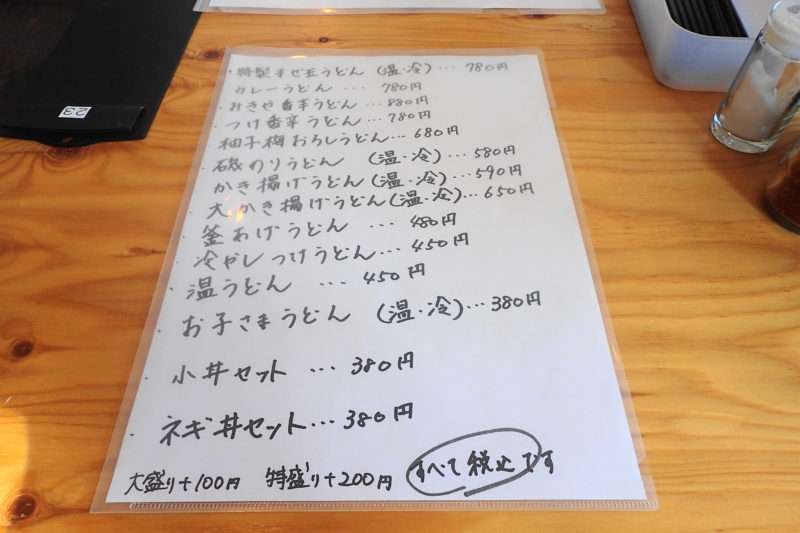 ・特製まぜ玉うどん (温・冷) … 780円
・カレーうどん … 780円
・みきや香辛うどん … 880円
・つけ香辛うどん … 780円
・柚子梅おろしうどん… 680円
・磯のりうどん (温・冷) … 580円
・かき揚げうどん (温・冷) … 590円
・大かき揚げうどん (温・冷) … 650円
・釜あげうどん … 480円
・冷やしつけうどん… 450円
・温うどん … 450円
・お子さまうどん (温・冷) … 380円
・小丼セット … 380円
・ネギ丼セット… 380円
大盛り+100円 特盛り+200円 すべて税込です
23